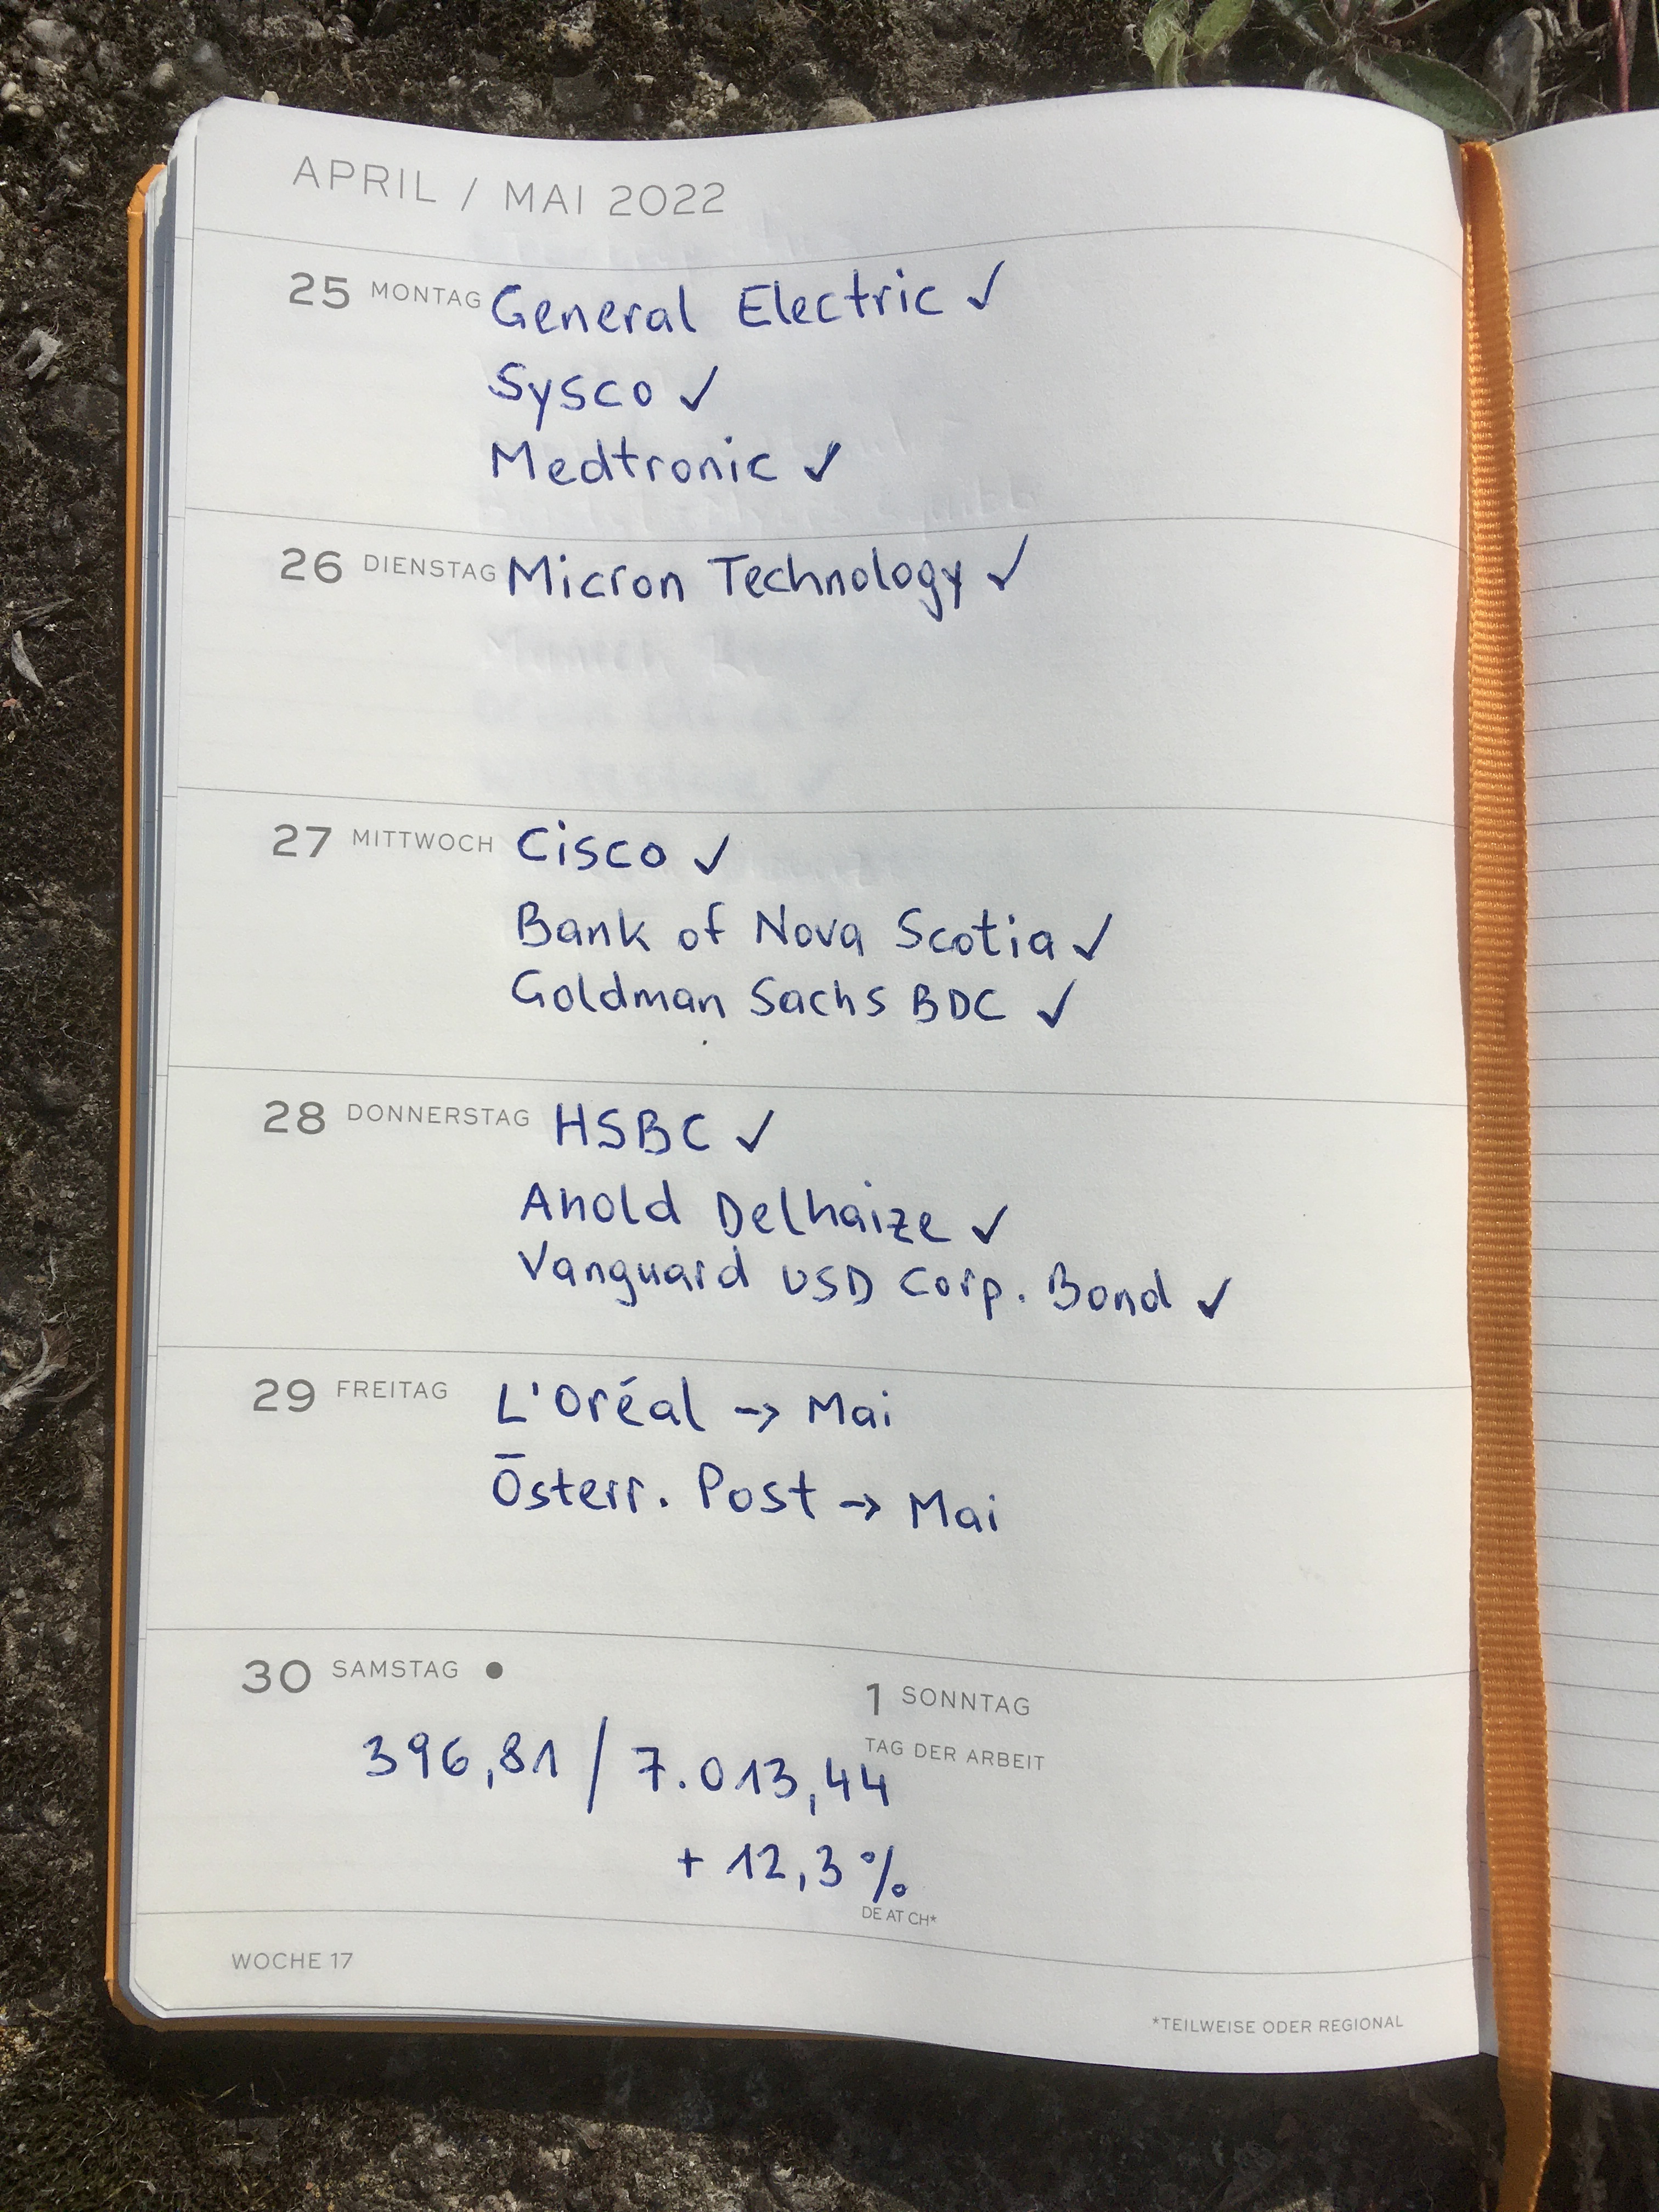 APRIL / MAI 2022
25 MONTAG General Electric ✓
Sysco ✓
Medtronic ✓
26 DIENSTAG Micron Technology ✓
27 MITTWOCH Cisco ✓
Bank of Nova Scotia ✓
Goldman Sachs BDC ✓
28 DONNERSTAG HSBC ✓
Ahold Delhaize ✓
Vanguard USD Corp. Bond ✓
29 FREITAG L'Oréal -> Mai
Österr. Post -> Mai
30 SAMSTAG ●
1 SONNTAG
TAG DER ARBEIT
396,81 / 7.013,44
+ 12,3 %
DE AT CH*
WOCHE 17
*TEILWEISE ODER REGIONAL